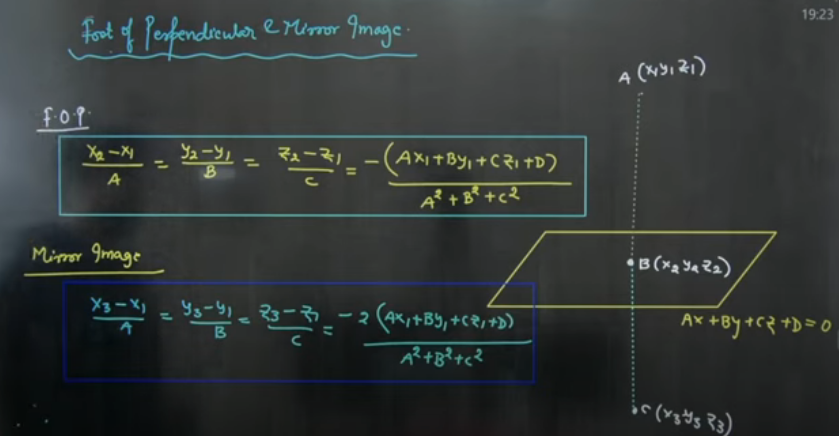 19:23
Foot of Perpendicular & Mirror Image.
A (x₁y₁z₁)
F.O.P.
x₂-x₁/A = y₂-y₁/B = z₂-z₁/C = -(Ax₁+By₁+Cz₁+D)/A²+B²+C²
B(x₂y₂z₂)
Mirror Image
x₃-x₁/A = y₃-y₁/B = z₃-z₁/C = -2(Ax₁+By₁+Cz₁+D)/A²+B²+C²
Ax+By+Cz+D=0
C(x₃y₃z₃)